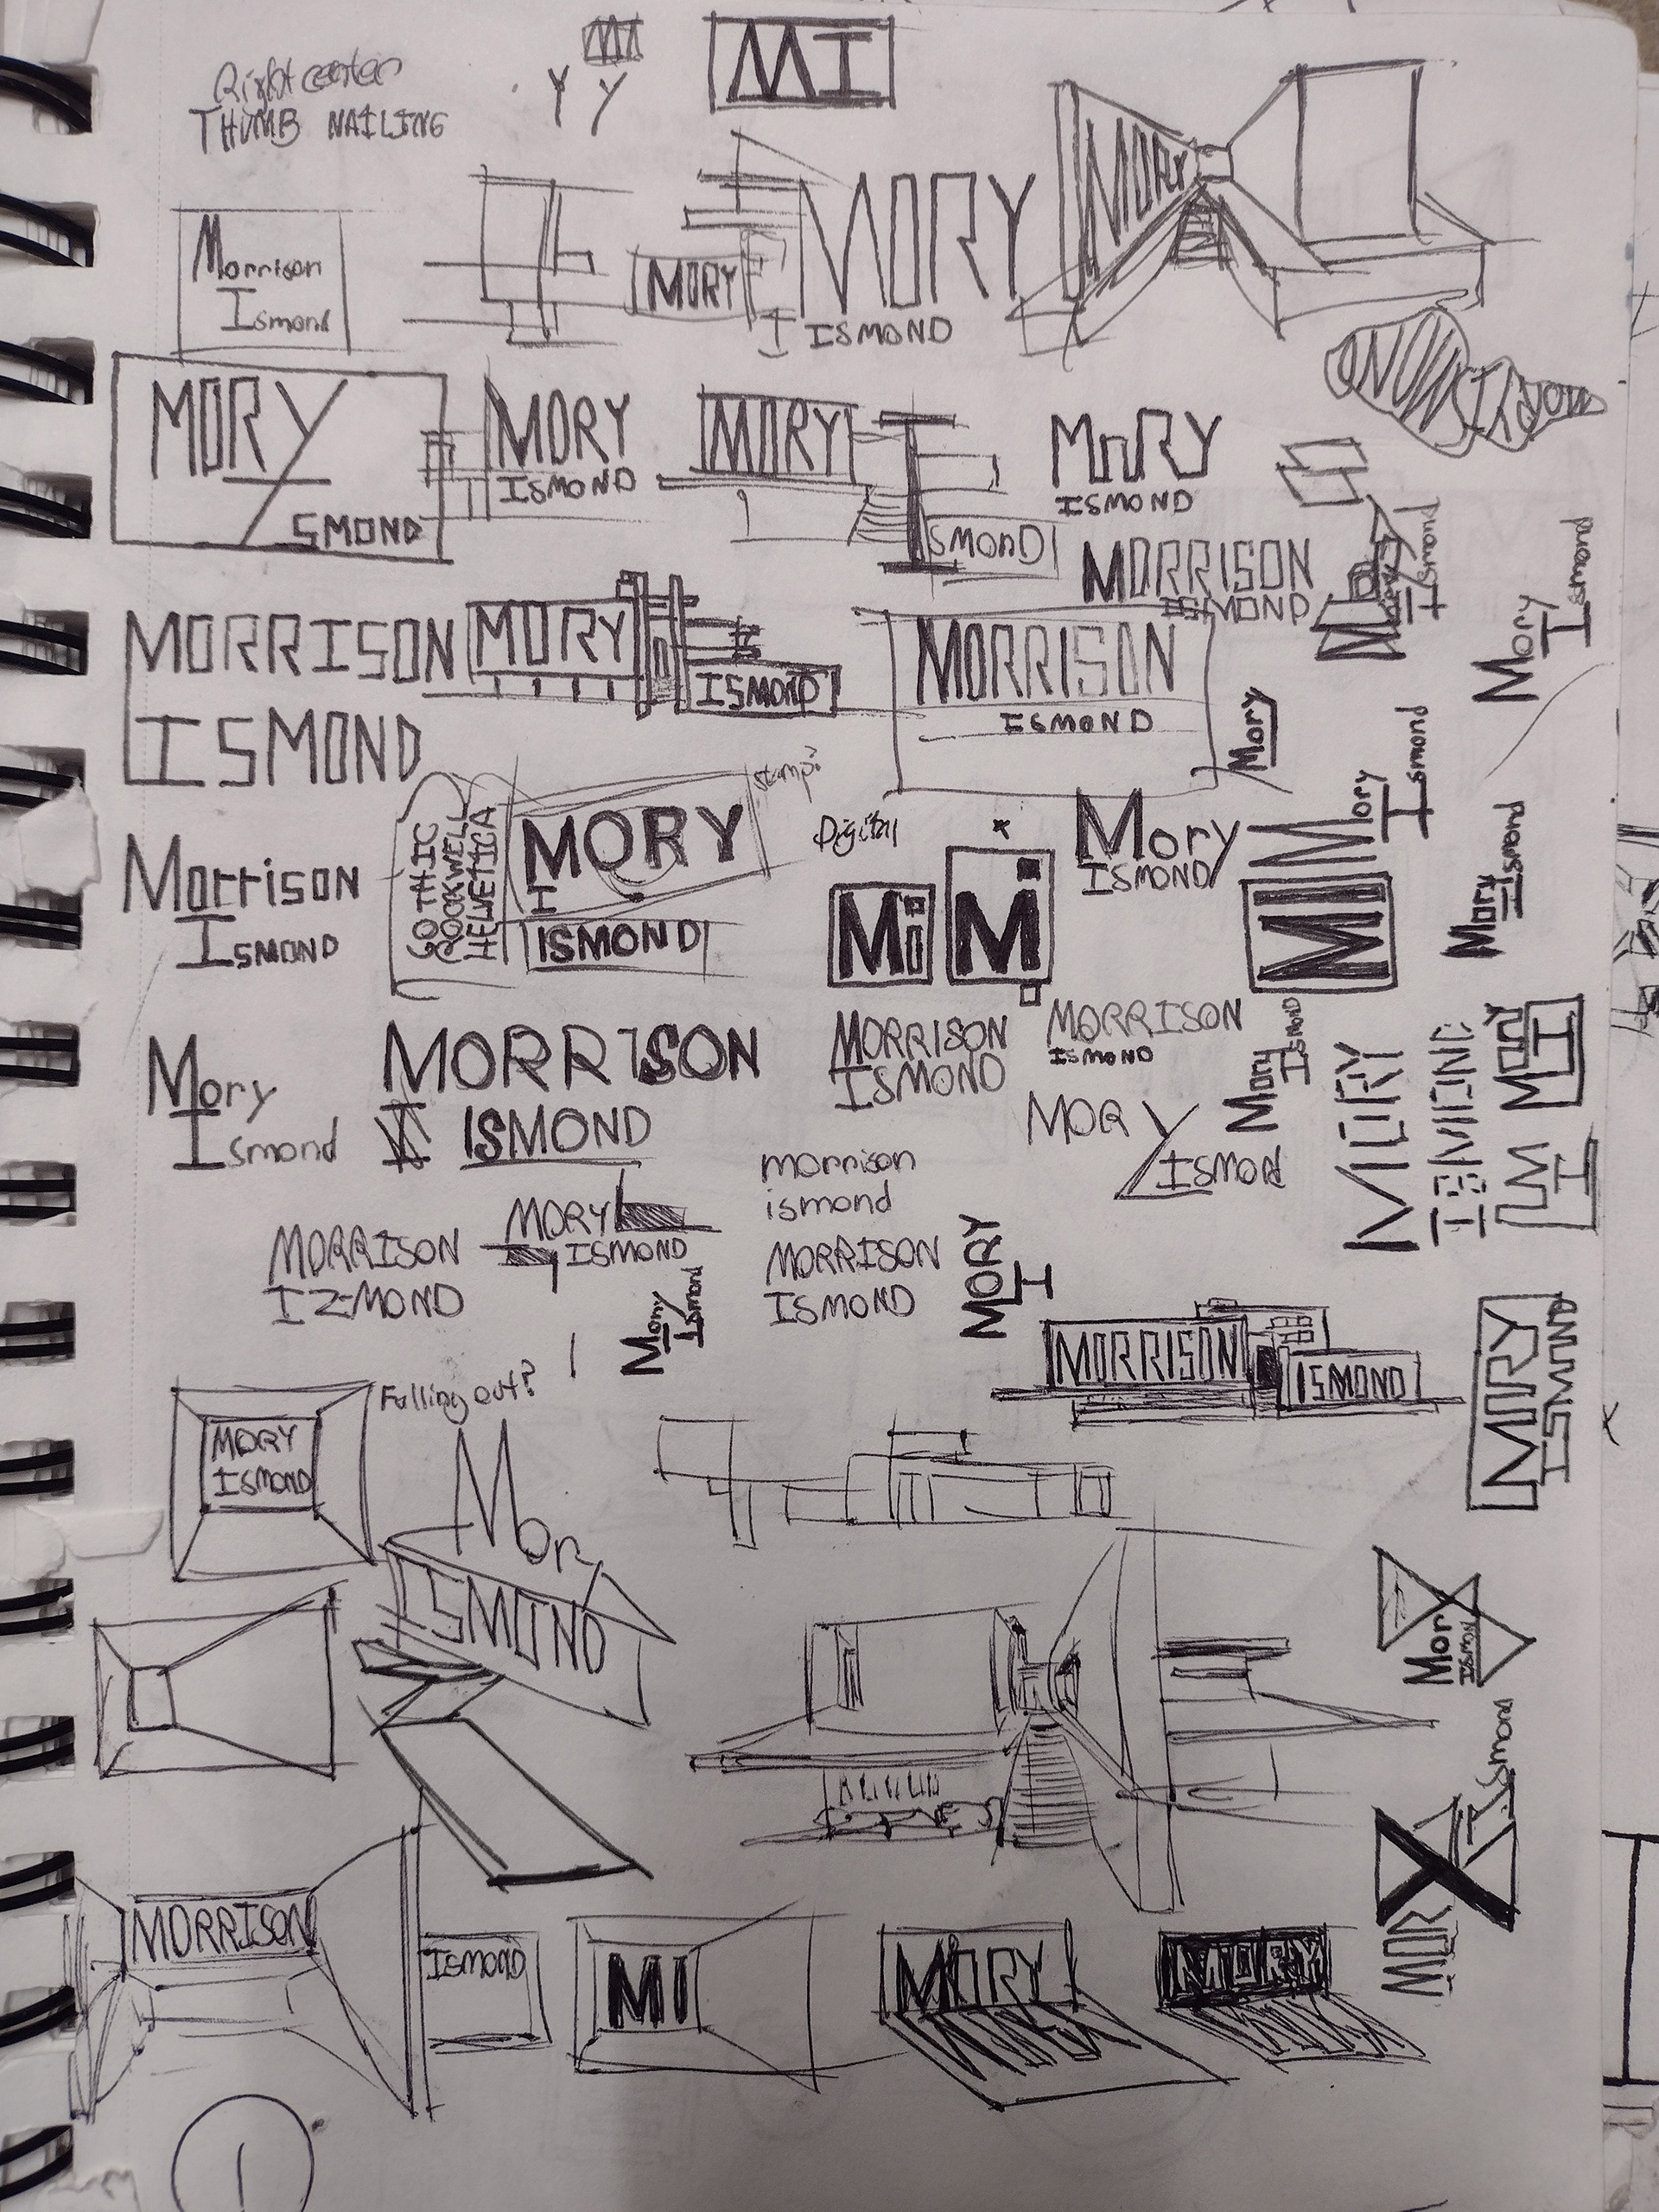 MI
MI
Right center
THUMB NAILING
Y Y
Morrison
Ismond
MORY
MORY
I ISMOND
MORY
MORY ISMOND
MORY
SMOND
MORY
ISMOND
MORY
SMOND
MORY
ISMOND
MORRISON
ISMOND
Mory
Ismond
Mory
Ismond
MORRISON
ISMOND
MORY
ISMOND
MORRISON
ISMOND
Mory
Mory
Ismond
stamp?
GOTHIC
ROCKWELL
HELVETICA
MORY
I
ISMOND
Digital
Mi
Mi
Mory
ISMOND
MI
MI
Mory
Ismond
Morrison
ISMOND
Mory
Ismond
MORRISON
ISMOND
MORRISON
ISMOND
MORRISON
ISMOND
Mory
ISMOND
MORY
ISMOND
MORY
I
M
I
MORY
ISMOND
morrison
ismond
MORRISON
IZMOND
MORY
ISMOND
MORRISON
ISMOND
MORY
I
Mory
Ismond
MORRISON
ISMOND
MORY
ISMOND
Falling out?
MORY
ISMOND
Mory
ISMOND
Mory
ISMON
MOR
Ismond
MORRISON
ISMOND
MI
MORY
MORY
1